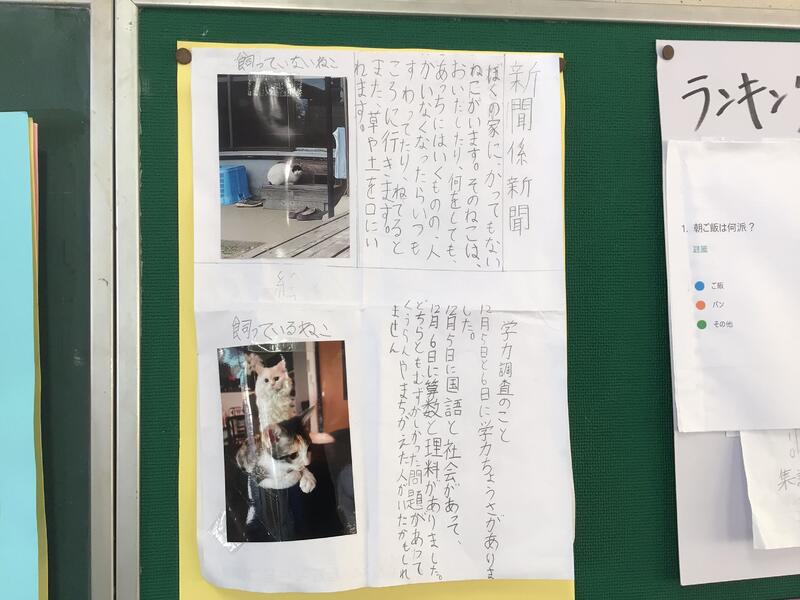 新聞係新聞
ぼくの家に、かってもない
ねこがいます。そのねこは、
おいたしたり、何をしても、
あっちにはいくものの、人
がいなくなったらいつも
すわってたり、ねてると
ころに行きます。
また、草や土を口にい
れます。
飼っていないねこ
飼っているねこ
学力調査のこと
12月5日と6日に学力ちょうさがありま
した。
12月5日に国語と社会があって、
12月6日に算数と理料がありました。
どちらともむずかしかった問題があって
くうらんやまちがえた人がいたかもしれ
ません
ランキン
1. 朝ご飯は何派？
ご飯
パン
その他